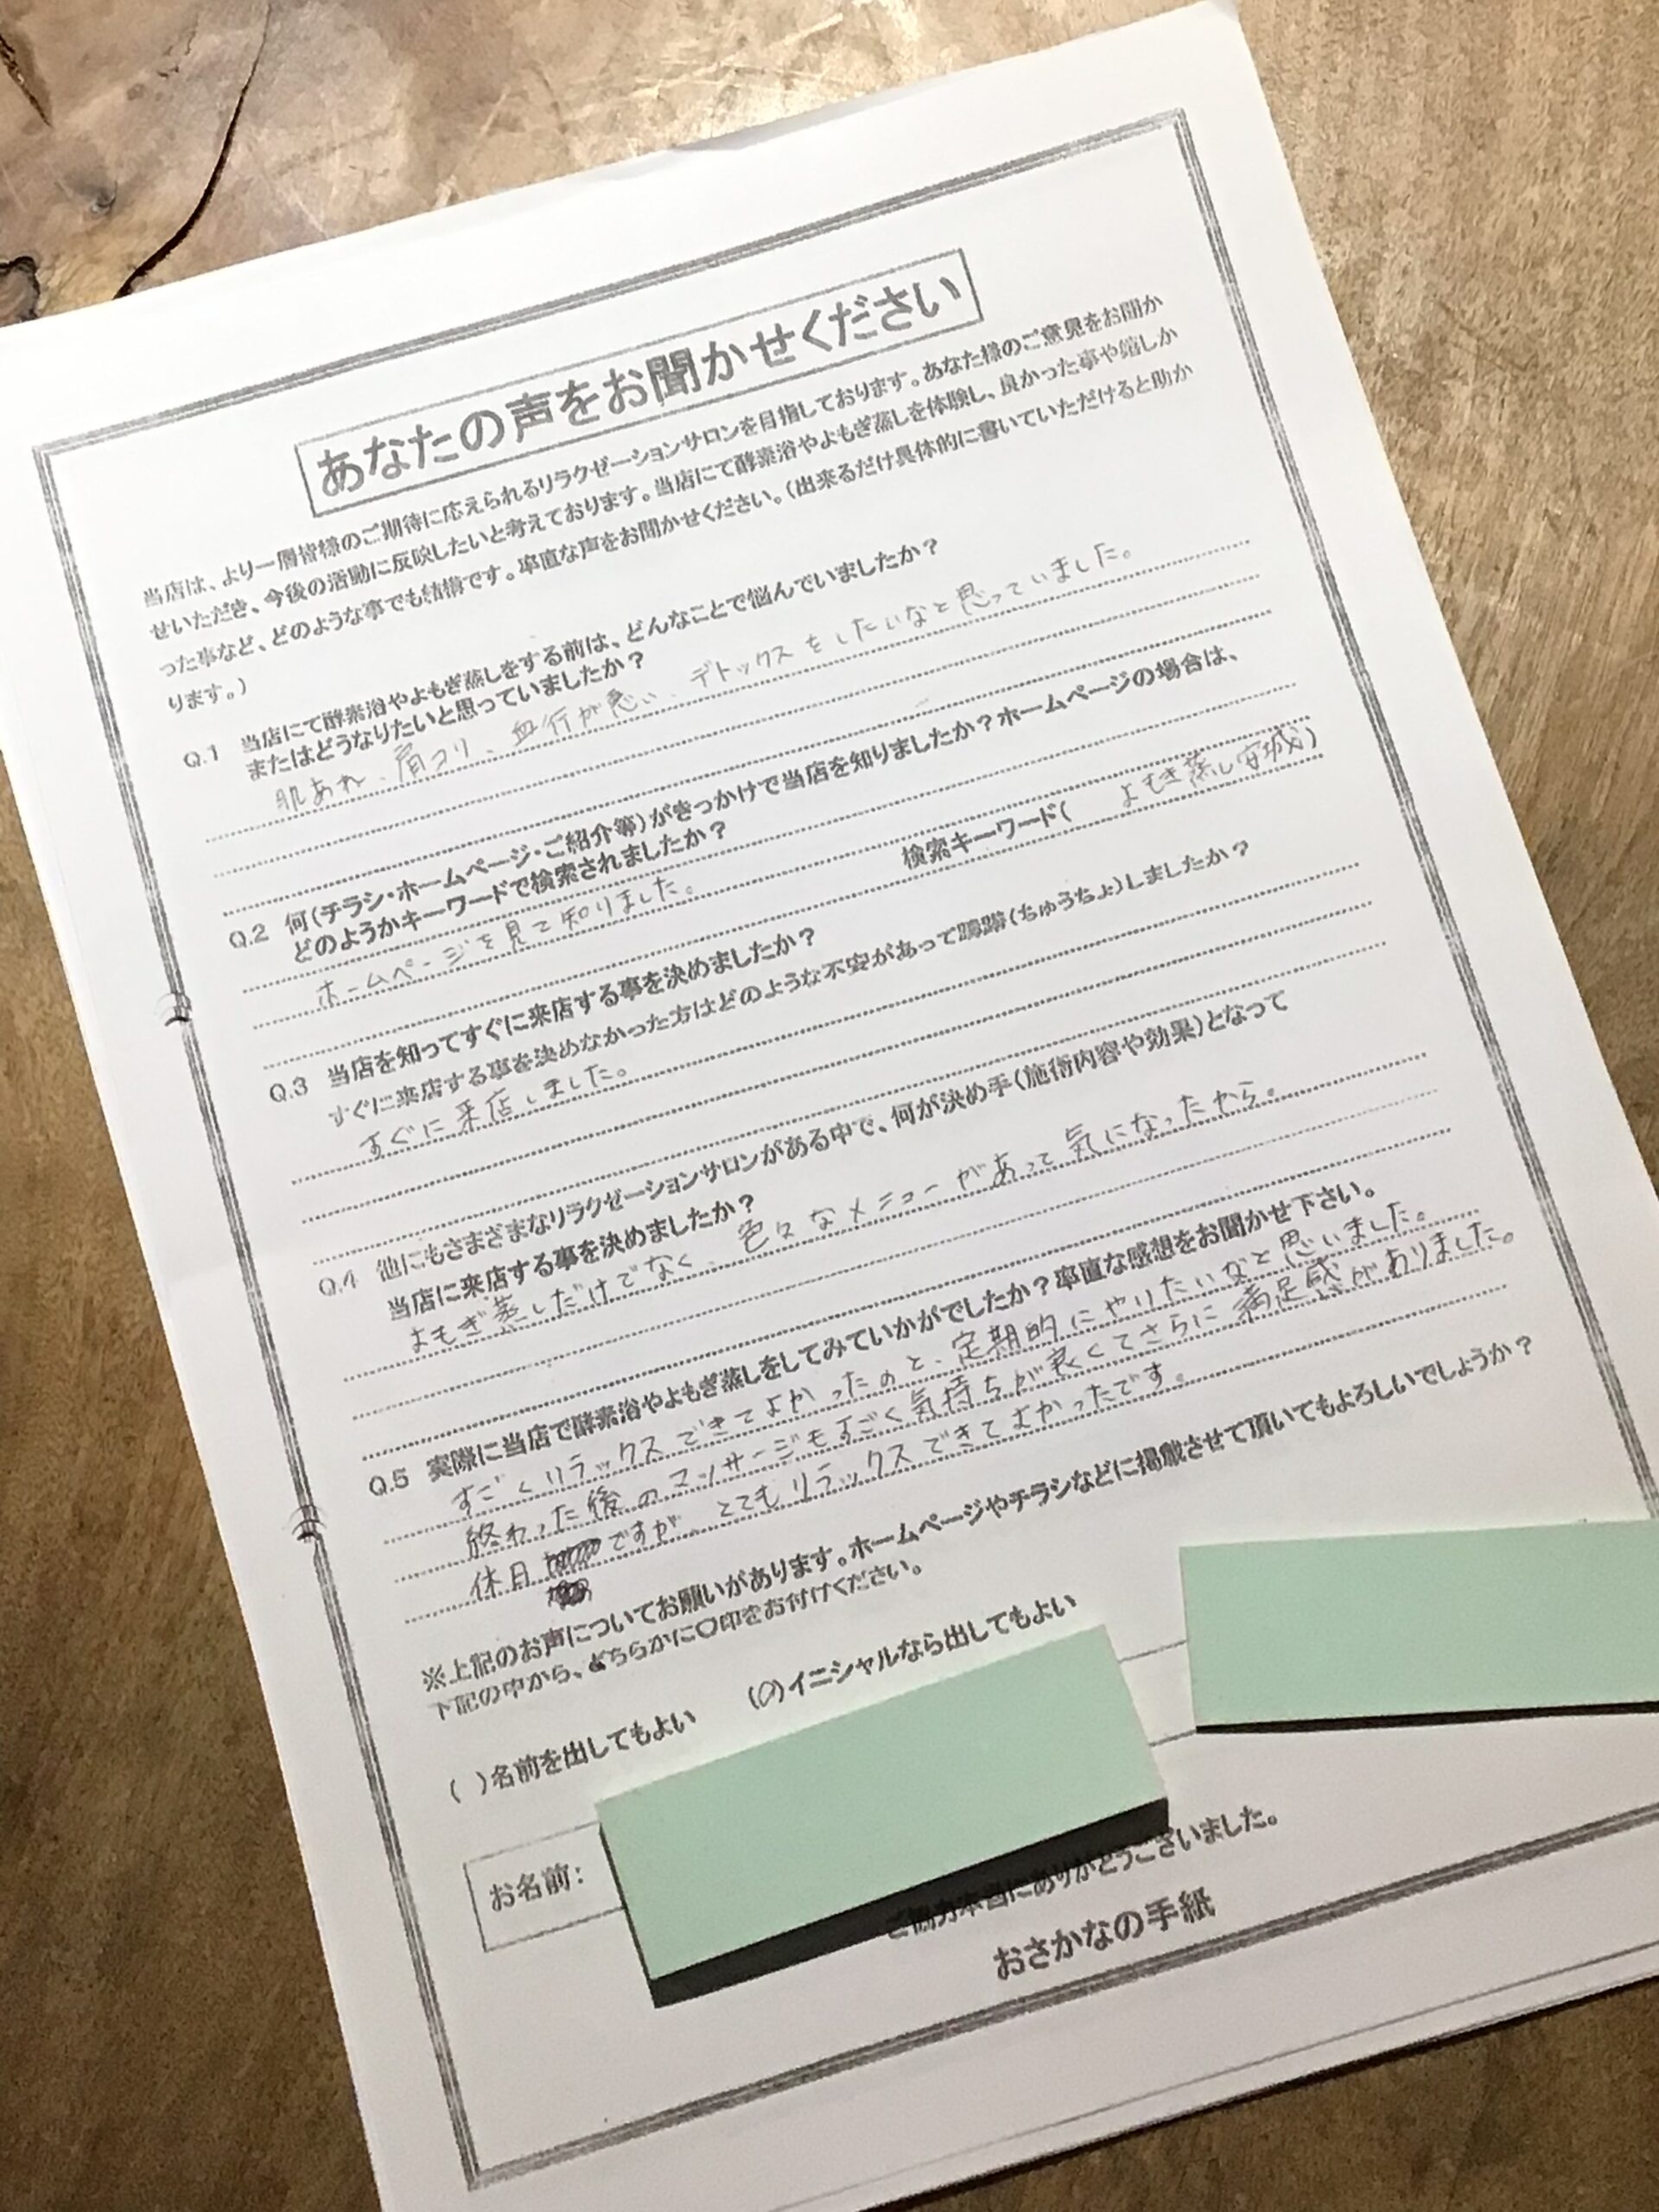 あなたの声をお聞かせください
当店は、より一層皆様のご期待に応えられるリラクゼーションサロンを目指しております。あなた様のご意見をお聞か
せいただき、今後の活動に反映したいと考えております。当店にて酵素浴やよもぎ蒸しを体験し、良かった事や嬉しか
った事など、どのような事でも結構です。率直な声をお聞かせください。(出来るだけ具体的に書いていただけると助か
ります。)
Q.1 当店にて酵素浴やよもぎ蒸しをする前は、どんなことで悩んでいましたか?
またはどうなりたいと思っていましたか?
肌あれ、肩コリ、血行が悪い、デトックスをしたいなと思っていました。
Q.2 何(チラシ・ホームページ・ご紹介等)がきっかけで当店を知りましたか?ホームページの場合は、
どのようかキーワードで検索されましたか?
検索キーワード( よもぎ蒸し安城)
ホームページを見て知りました。
Q.3 当店を知ってすぐに来店する事を決めましたか?
すぐに来店する事を決めなかった方はどのような不安があって躊躇(ちゅうちょ)しましたか?
すぐに来店しました。
Q.4 他にもさまざまなリラクゼーションサロンがある中で、何が決め手(施術内容や効果)となって
当店に来店する事を決めましたか?
よもぎ蒸しだけでなく、色々なメニューがあって気になったから。
Q.5 実際に当店で酵素浴やよもぎ蒸しをしてみていかがでしたか?率直な感想をお聞かせ下さい。
すごくリラックスできてよかったのと、定期的にやりたいなと思いました。
終わった後のマッサージもすごく気持ちが良くてさらに満足感がありました。
休日ですが、とてもリラックスできてよかったです。
※上記のお声についてお願いがあります。ホームページやチラシなどに掲載させて頂いてもよろしいでしょうか?
下記の中から、どちらかに〇印をお付けください。
( )名前を出してもよい (〇)イニシャルなら出してもよい
お名前:
ご協力本当にありがとうございました。
おさかなの手紙